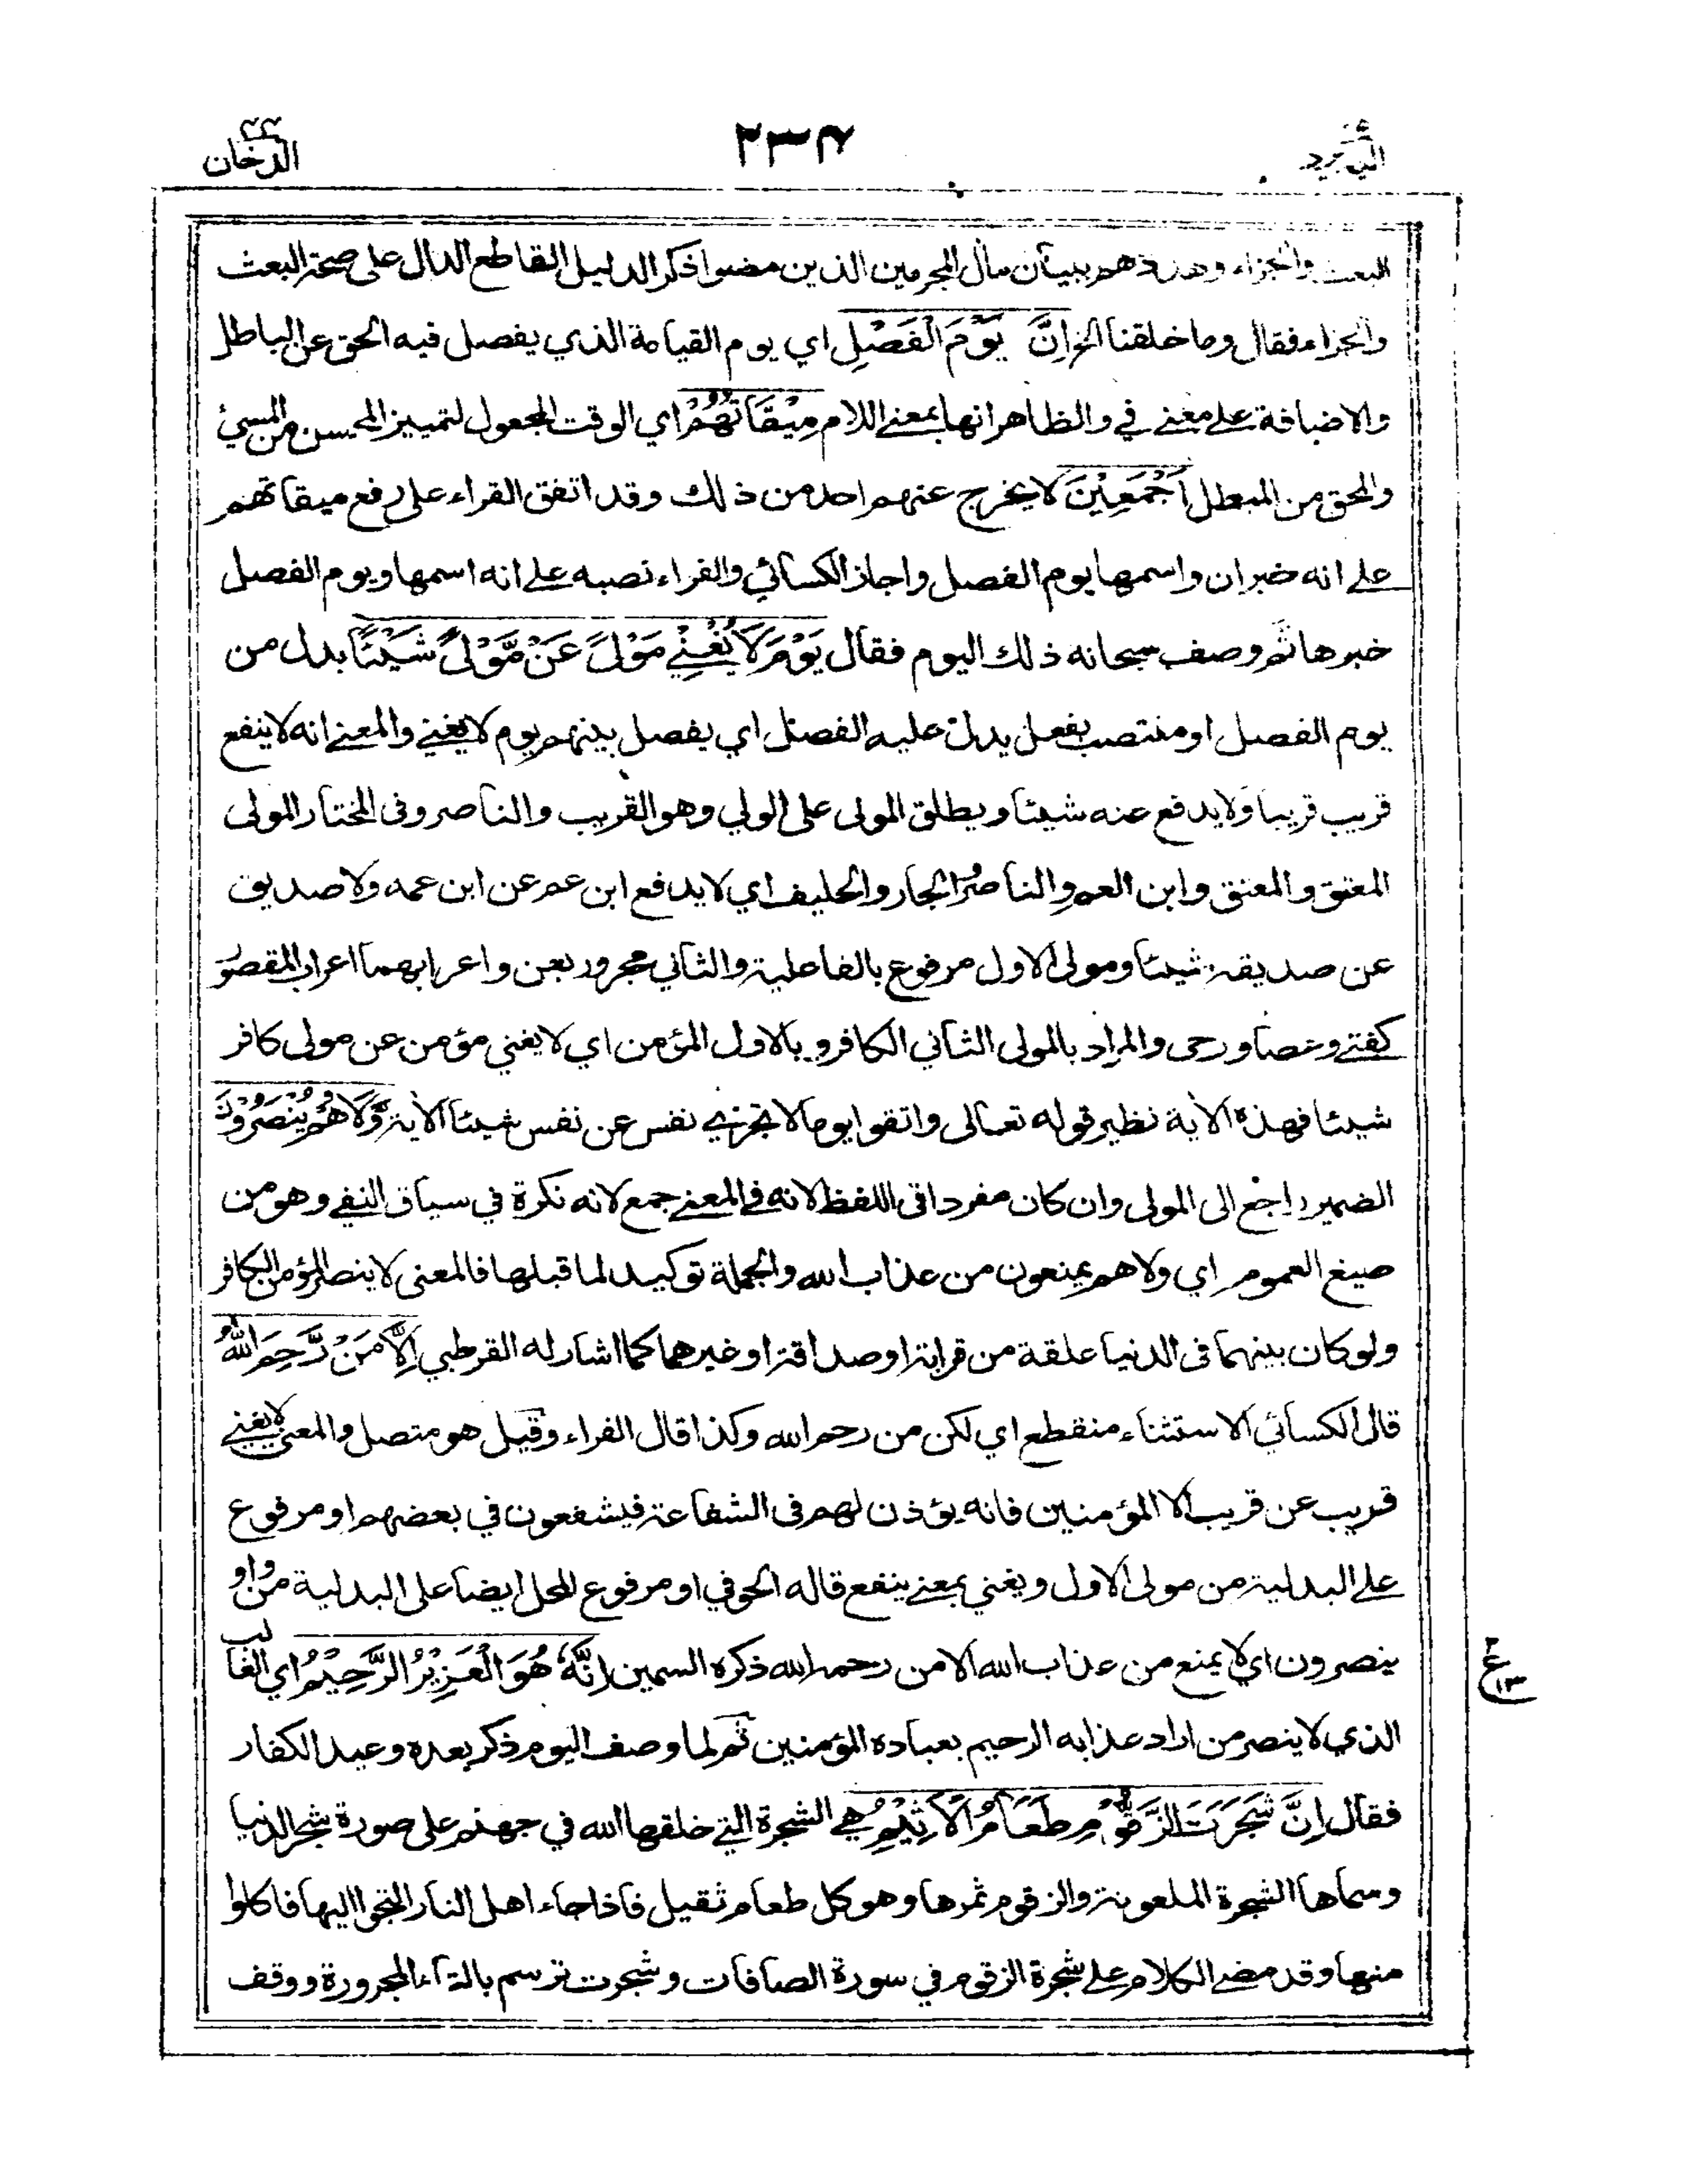 اليه يرد
٢٣٤
الدخان ٤٤
البعث والجزاء وهددهم ببيان مآل المجرمين الذين مضوا ذكر الدليل القاطع الدال على صحة البعث
والجزاء فقال وما خلقنا الخ اِنَّ يَوْمَ الْفَصْلِ اي يوم القيامة الذي يفصل فيه الحق عن الباطل
والاضافة على معنى في والظاهر انها بمعنى اللام مِيْقَاتُهُمْ اي الوقت المجعول لتمييز المحسن من المسيئ
والمحق من المبطل اَجْمَعِيْنَ لا يخرج عنهم احد من ذلك وقد اتفق القراء على رفع ميقاتهم
على انه خبر ان واسمها يوم الفصل واجاز الكسائي والفراء نصبه على انه اسمها ويوم الفصل
خبرها ثم وصف سبحانه ذلك اليوم فقال يَوْمَ لَا يُغْنِيْ مَوْلًى عَنْ مَّوْلًى شَيْئًا بدل من
يوم الفصل او منتصب بفعل يدل عليه الفصل اي يفصل بينهم يوم لا يغني والمعنى انه لا ينفع
قريب قريبا ولا يدفع عنه شيئا ويطلق المولى على الولي وهو القريب والناصر وفى المختار المولى
المعتق والمعتق وابن العم والناصر والجار والحليف اي لا يدفع ابن عم عن ابن عمه ولا صديق
عن صديقه شيئا ومولى الاول مرفوع بالفاعلية والثاني مجرور بعن واعرابهما اعراب المقصور
كفتى وعصا ورحى والمراد بالمولى الثاني الكافر وبالاول المؤمن اي لا يغني مؤمن عن مولى كافر
شيئا فهذه الآية نظير قوله تعالى واتقوا يوما لا تجزي نفس عن نفس شيئا الآية وَّلَا هُمْ يُنْصَرُوْنَ
الضمير راجع الى المولى وان كان مفردا فى اللفظ لانه في المعنى جمع لانه نكرة في سياق النفي وهو من
صيغ العموم اي ولا هم يمنعون من عذاب الله والجملة توكيد لما قبلها فالمعنى لا ينصر المؤمن الكافر
ولو كان بينهما فى الدنيا علقة من قرابة او صداقة او غيرهما كما اشار له القرطبي اِلَّا مَنْ رَّحِمَ اللّٰهُ
قال الكسائي الاستثناء منقطع اي لكن من رحم الله وكذا قال الفراء وقيل هو متصل والمعنى لا يغني
قريب عن قريب الا المؤمنين فانه يؤذن لهم فى الشفاعة فيشفعون في بعضهم او مرفوع
على البدلية من مولى الاول ويغني بمعنى ينفع قاله الحوفي او مرفوع المحل ايضا على البدلية من واو
ينصرون اي لا يمنع من عذاب الله الا من رحمه الله ذكره السمين اِنَّهٗ هُوَ الْعَزِيْزُ الرَّحِيْمُ اي الغالب
ع ١٣
الذي لا ينصر من اراد عذابه الرحيم بعباده المؤمنين ثم لما وصف اليوم ذكر بعده وعيد الكفار
فقال اِنَّ شَجَرَتَ الزَّقُّوْمِ طَعَامُ الْاَثِيْمِ هي الشجرة التي خلقها الله في جهنم على صورة شجر الدنيا
وسماها الشجرة الملعونة والزقوم ثمرها وهو كل طعام ثقيل فاذا جاء اهل النار التجوا اليها فاكلوا
منها وقد مضى الكلام على شجرة الزقوم في سورة الصافات وشجرت ترسم بالتاء المجرورة ووقف